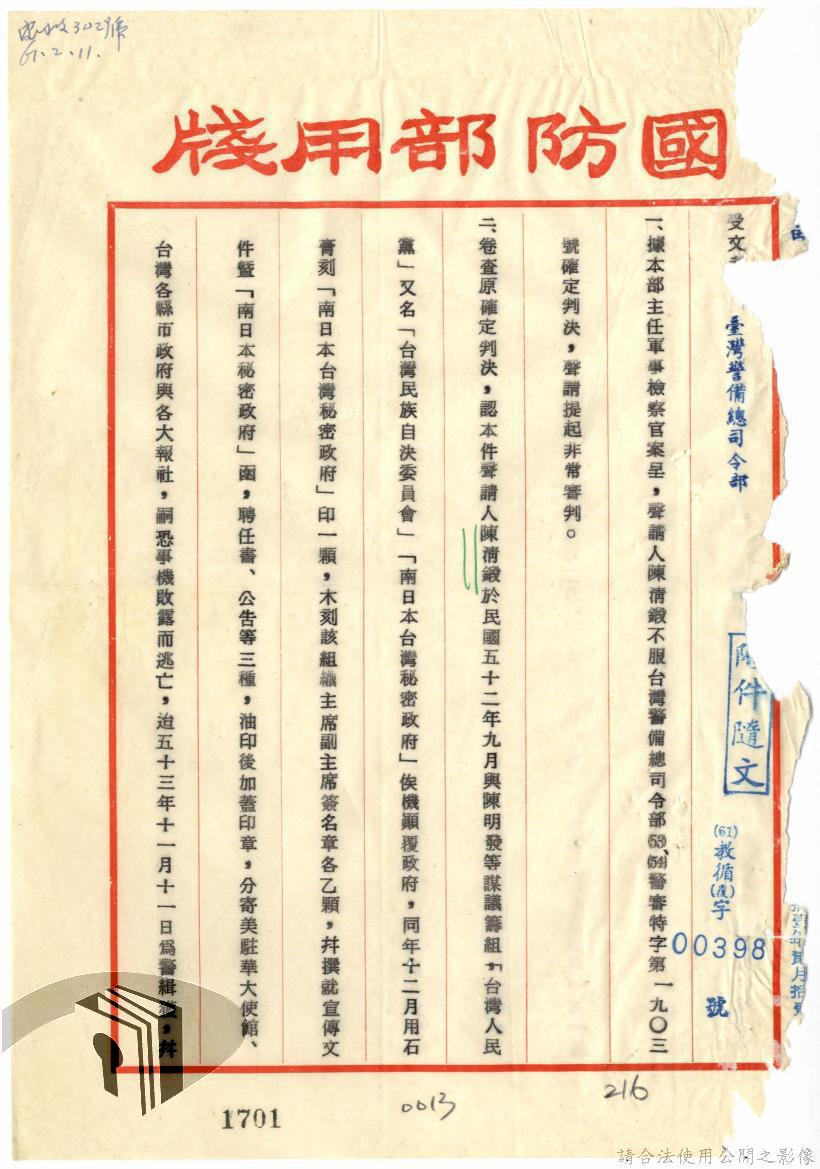 302號
61.2.11.
國防部用牋
受文
臺灣警備總司令部
附件隨文
(61)教循(復)字
00398
號
一、據本部主任軍事檢察官案呈,聲請人陳清鍛不服台灣警備總司令部(53)、(54)警審特字第一九〇三
號確定判決,聲請提起非常審判。
二、卷查原確定判決,認本件聲請人陳清鍛於民國五十二年九月與陳明發等謀議籌組,「台灣人民
黨」又名「台灣民族自決委員會」「南日本台灣秘密政府」俟機顚覆政府,同年十二月用石
膏刻「南日本台灣秘密政府」印一顆,木刻該組織主席副主席簽名章各乙顆,幷撰就宣傳文
件曁「南日本秘密政府」函,聘任書、公告等三種,油印後加蓋印章,分寄美駐華大使館、
台灣各縣市政府與各大報社,嗣恐事機敗露而逃亡,迨五十三年十一月十一日爲警緝獲,幷
1701
0013
216
請合法使用公開之影像